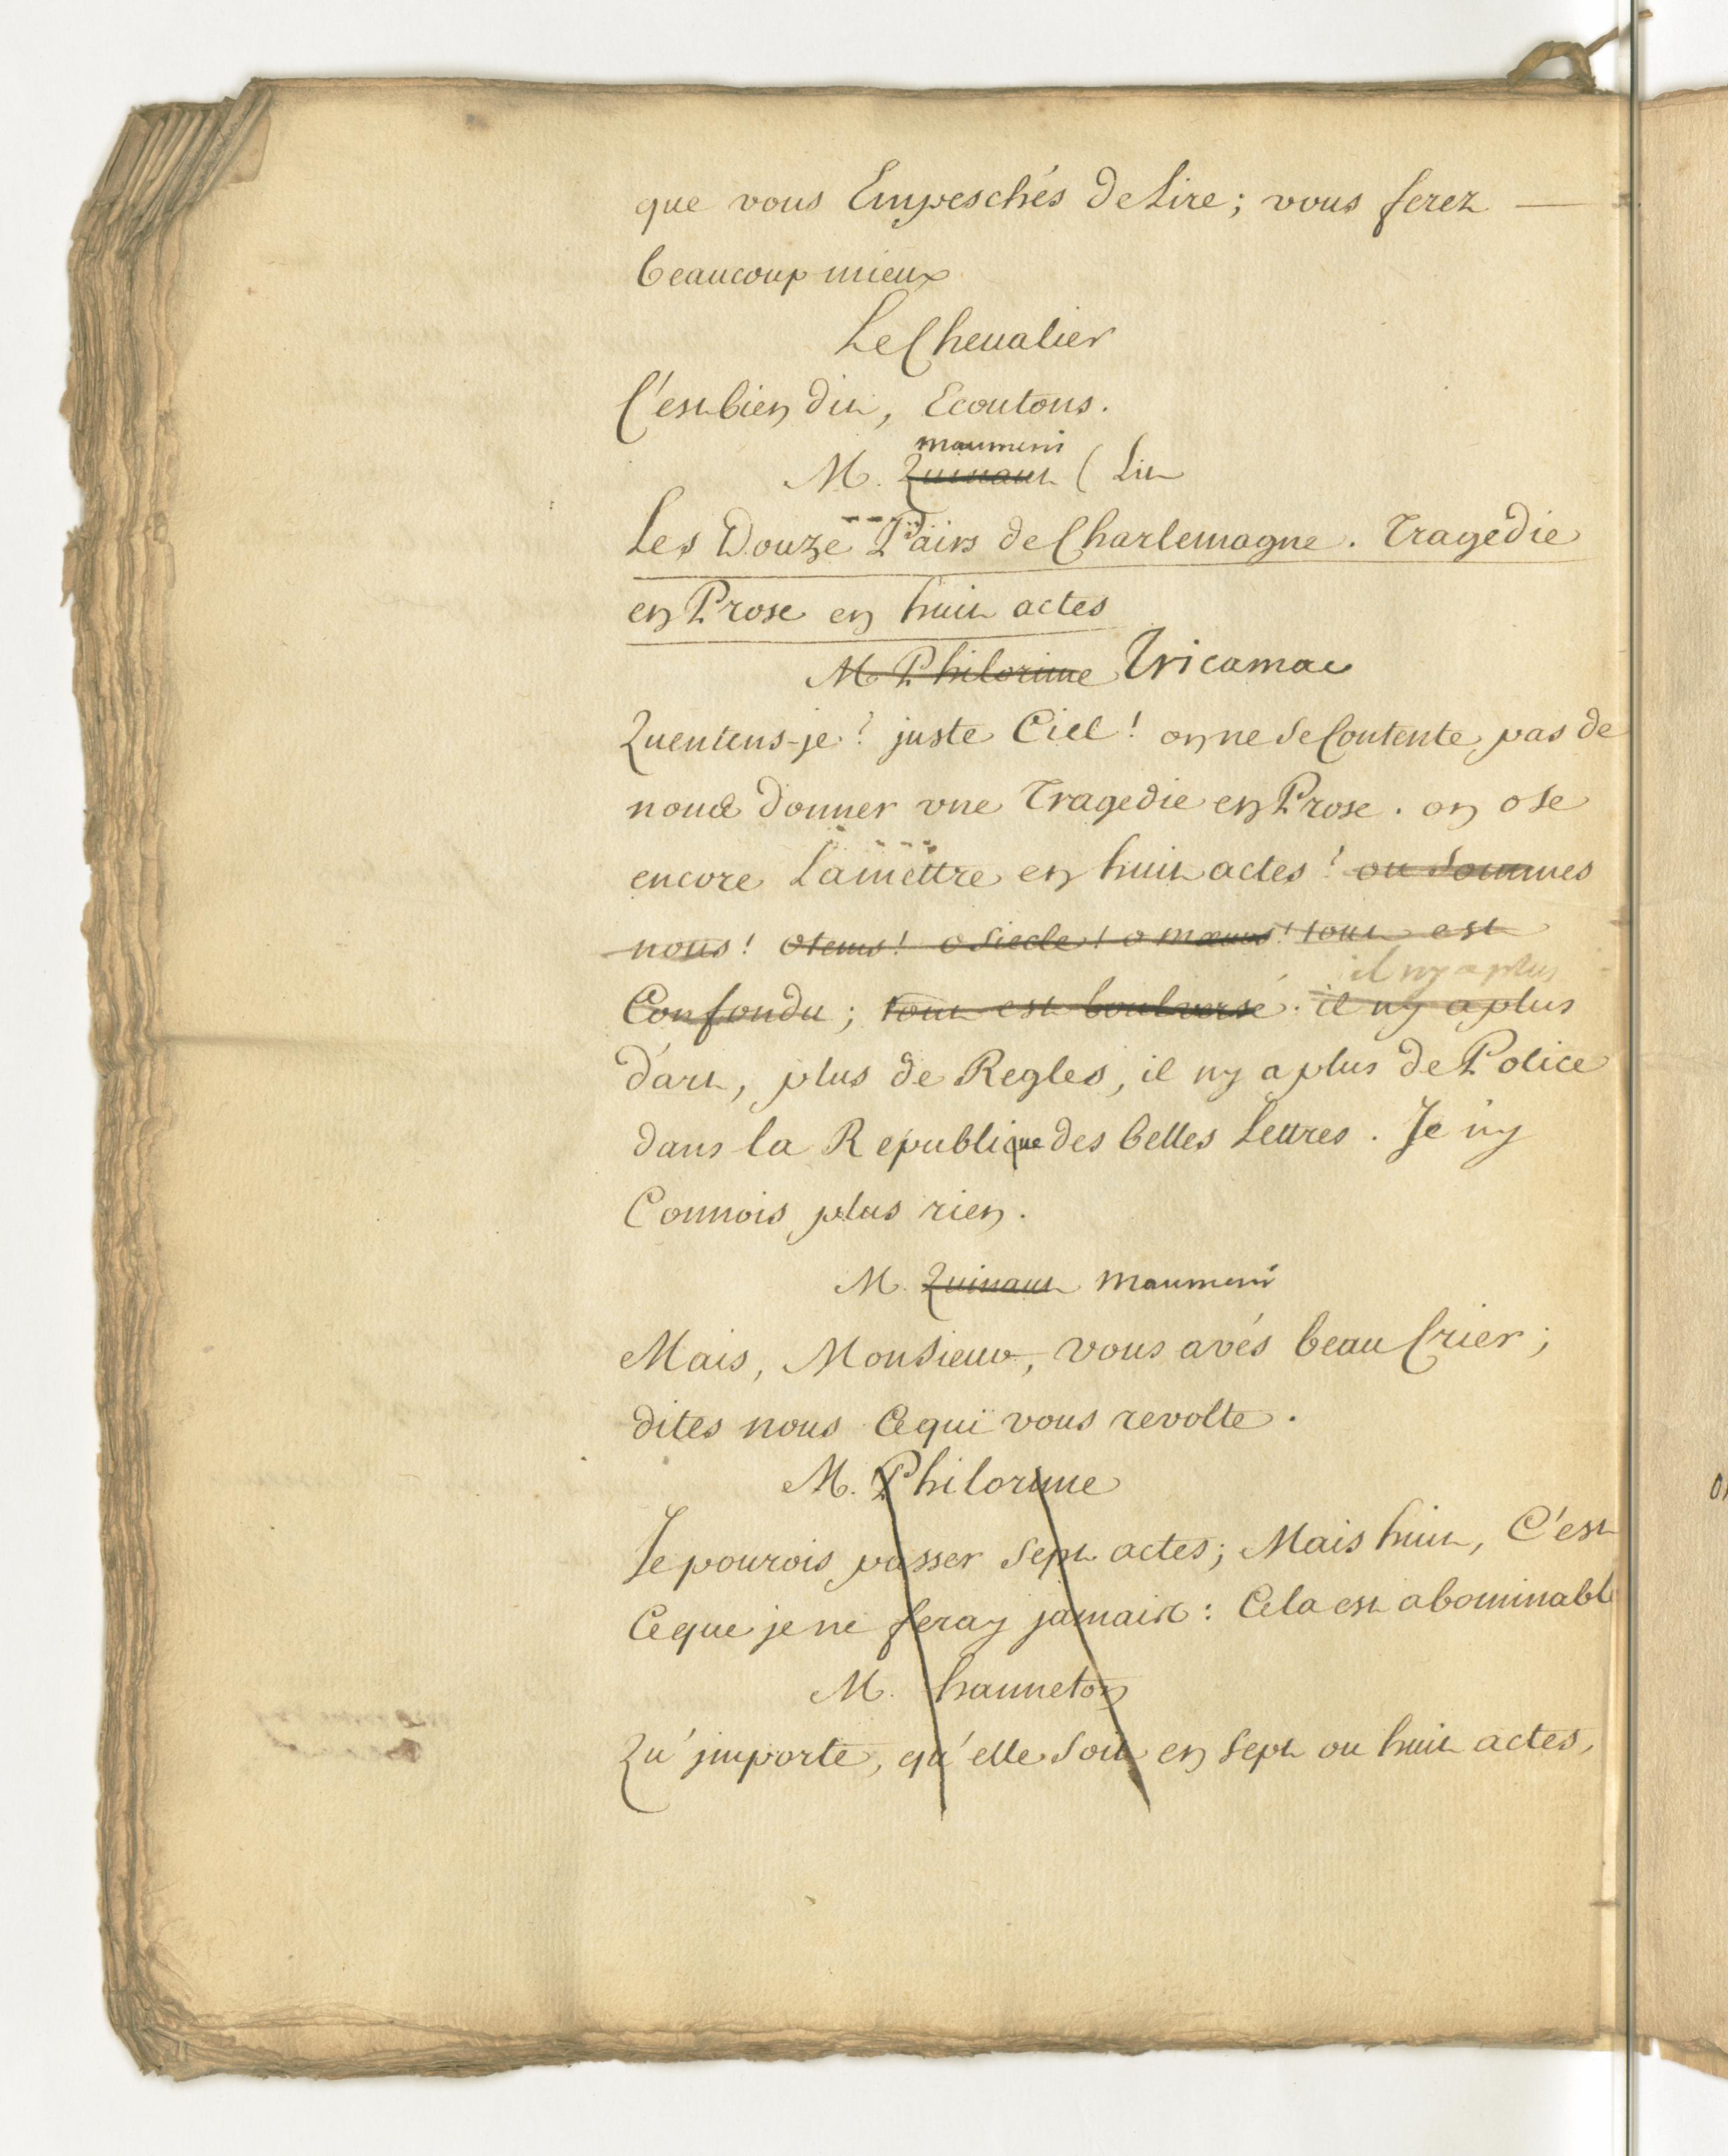 que vous Empeschés de Lire; vous ferez —
beaucoup mieux
Le Chevalier
C'est bien dit, Ecoutons.
maumeni
M. Quinaut ( Lit
Les Douze Pairs de Charlemagne. Tragedie
en Prose en huit actes
M Philorime Tricamac
Quentens-je? juste Ciel! on ne se Contente pas de
nous donner une Tragedie en Prose. on ose
encore La mettre en huit actes! ou sommes
nous! o tems! o siecle! o mœurs! tout est
il ny a plus
Confondu; tout est boulversé. il ny a plus
d'art, plus de Regles, il ny a plus de Police
dans la Republique des belles Lettres. Je n'y
Connois plus rien.
M. Quinaut maumeni
Mais, Monsieur, vous avés beau Crier;
dites nous Ce qui vous revolte.
M. Philorime
Je pourois passer sept actes; Mais huit, C'est
Ce que je ne feray jamais: Cela est abominable
M. hanneton
Qu'jmporte, qu'elle soit en sept ou huit actes,